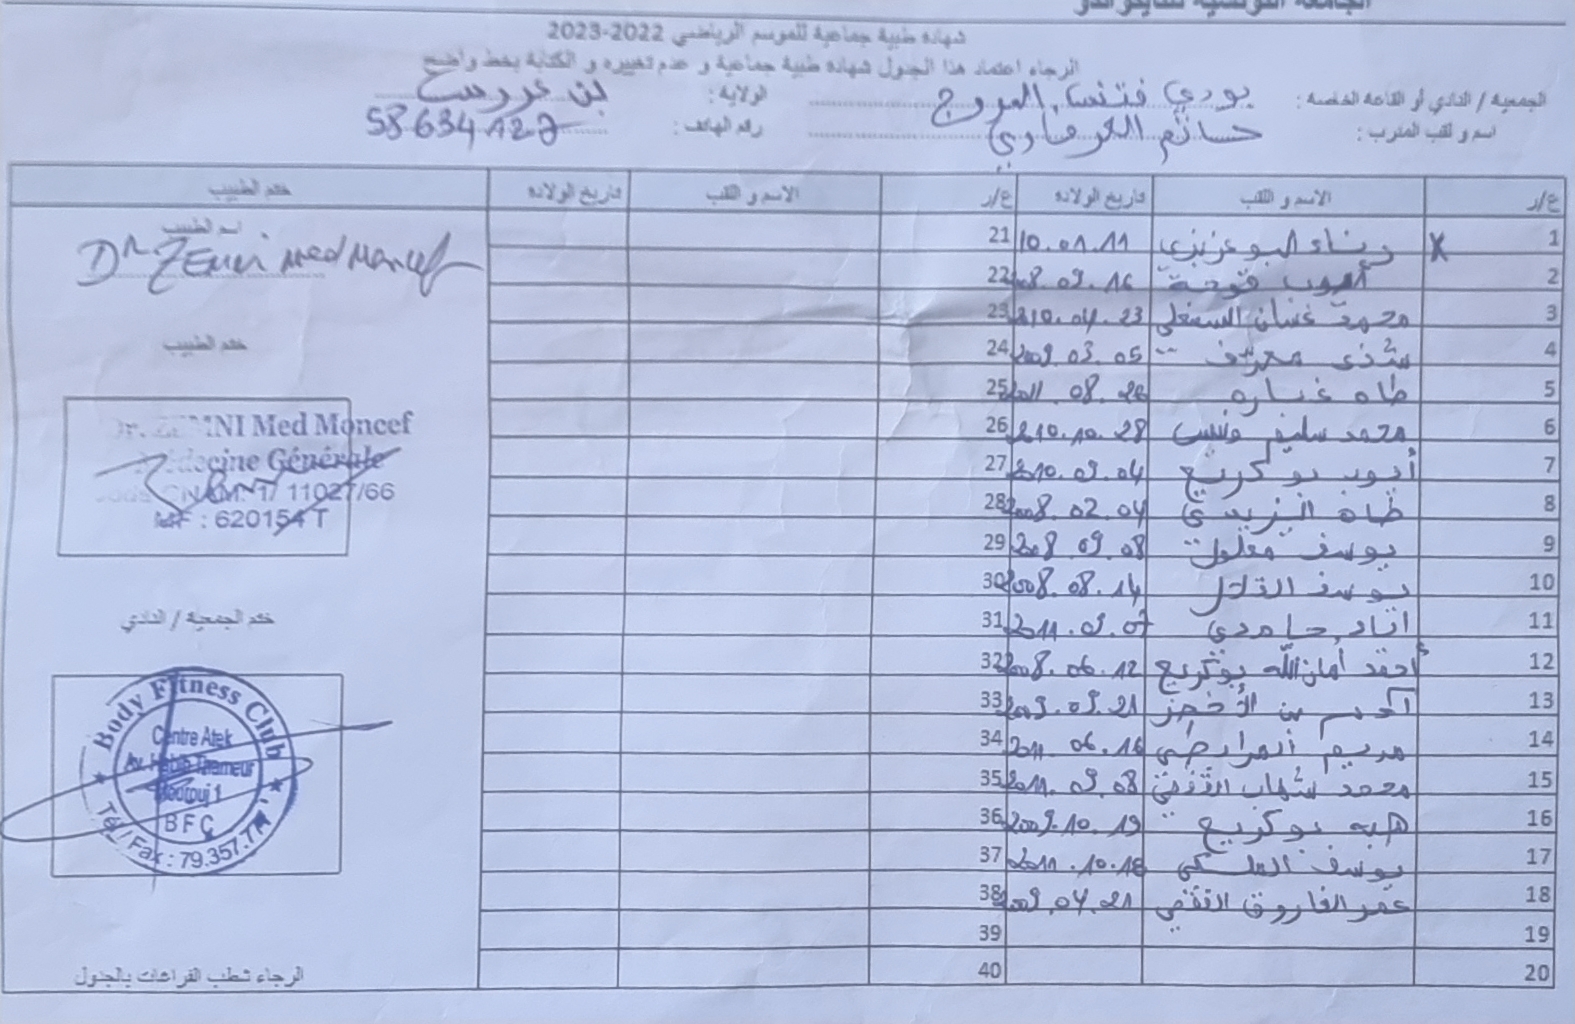 شهادة طبية جماعية للموسم الرياضي 2022-2023
الرجاء اعتماد هذا الجدول شهادة طبية جماعية و عدم تغييره و الكتابة بخط واضح
الجمعية / النادي أو القاعة الخاصة : بودي فتنس المروج الولاية : بن عروس
اسم و لقب المدرب : حاتم رقم الهاتف : 58634127
ع/ر الاسم و اللقب تاريخ الولادة ع/ر الاسم و اللقب تاريخ الولادة ختم الطبيب
1 X البوعزيزي 10.01.11 21
2 أيوب قوجة 2008.09.16 22
3 محمد غسان 210.04.23 23
4 شذى 2009.03.05 24
5 طاه غباره 2011.08.26 25
6 محمد سليم ونيس 210.10.28 26
7 أيوب بوكريع 2010.09.04 27
8 طاه اليزيدي 2008.02.04 28
9 يوسف معلول 208.09.08 29
10 يوسف 2008.08.14 30
11 اياد حامدي 2011.09.07 31
12 أحمد أمان الله بوكريع 2008.06.12 32
13 بن الأخضر 2009.09.21 33
14 مريم المرابطي 2011.06.16 34
15 محمد شهاب 2011.09.08 35
16 هبه بوكريع 2009.10.19 36
17 يوسف المكي 2011.10.18 37
18 عمر الفاروق 2009.04.21 38
19 39
20 40
اسم الطبيب
Dr. ZEMNI Med Moncef
ختم الطبيب
Dr. ZEMNI Med Moncef
Médecine Générale
Code CNAM: 1/ 11027/66
MF : 620154 T
ختم الجمعية / النادي
Body Fitness Club
Centre Atek
Av. Habib Thameur
Mourouj 1
BFC
Tél / Fax : 79.357.
الرجاء شطب الفراغات بالجدول